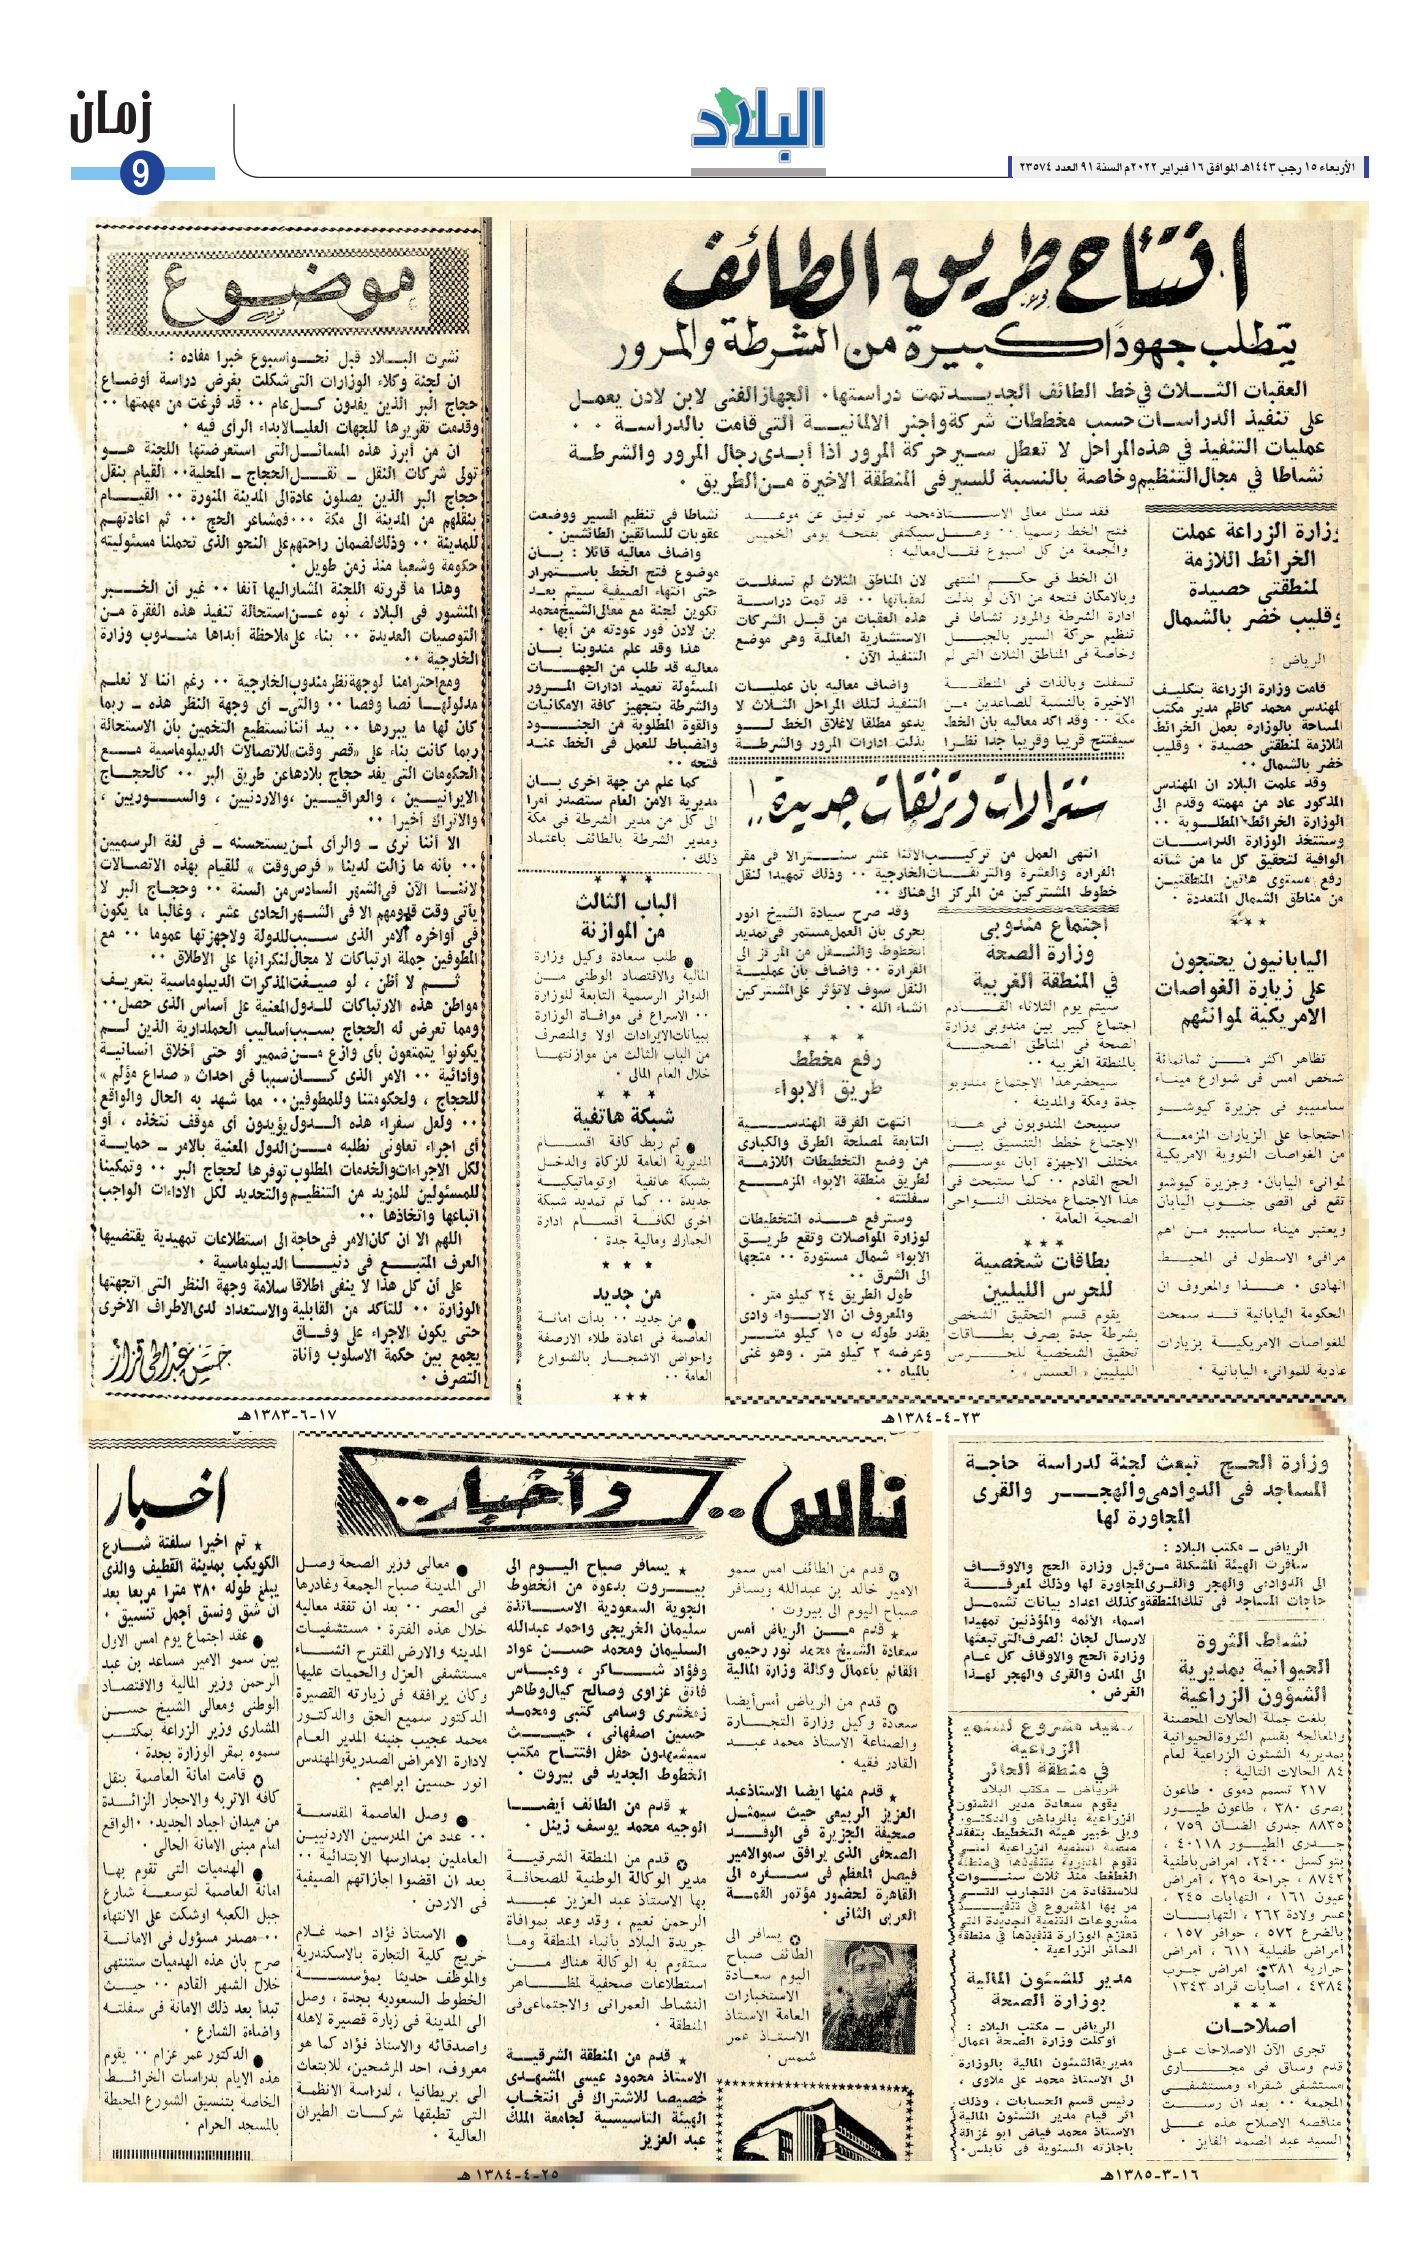 زمان
9
البلاد
الأربعاء ١٥ رجب ١٤٤٣هـ الموافق ١٦ فبراير ٢٠٢٢م السنة ٩١ العدد ٢٣٥٧٤
افتتاح طريق الطائف
يتطلب جهودًا كبيرة من الشرطة والمرور
العقبات الثلاث في خط الطائف الجديد تمت دراستها . الجهاز الفنى لابن لادن يعمل
على تنفيذ الدراسات حسب مخططات شركة واجنر الالمانية التى قامت بالدراسة . .
عمليات التنفيذ في هذه المراحل لا تعطل سير حركة المرور اذا أبدى رجال المرور والشرطة
نشاطا في مجال التنظيم وخاصة بالنسبة للسير فى المنطقة الاخيرة من الطريق .
وزارة الزراعة عملت
الخرائط اللازمة
لمنطقتى حصيدة
وقليب خضر بالشمال
الرياض :
قامت وزارة الزراعة بتكليف
المهندس محمد كاظم مدير مكتب
المساحة بالوزارة بعمل الخرائط
اللازمة لمنطقتى حصيدة . وقليب
خضر بالشمال ..
وقد علمت البلاد ان المهندس
المذكور عاد من مهمته وقدم الى
الوزارة الخرائط المطلوبة ..
وستتخذ الوزارة الدراسات
الوافية لتحقيق كل ما من شانه
رفع مستوى هاتين المنطقتين
من مناطق الشمال المتعددة .
اليابانيون يحتجون
على زيارة الغواصات
الامريكية لموانئهم
تظاهر اكثر من ثمانمائة
شخص امس فى شوارع ميناء
ساسيبو فى جزيرة كيوشو
احتجاجا على الزيارات المزمعة
من الغواصات النووية الامريكية
لموانىء اليابان . وجزيرة كيوشو
تقع فى اقصى جنوب اليابان
ويعتبر ميناء ساسيبو من اهم
مرافىء الاسطول فى المحيط
الهادى . هذا والمعروف ان
الحكومة اليابانية قد سمحت
للغواصات الامريكية بزيارات
عادية للموانىء اليابانية .
فقد سئل معالى الاستاذ محمد عمر توفيق عن موعد
فتح الخط رسميا .. وهل سيكتفى بفتحه يومى الخميس
والجمعة من كل اسبوع فقال معاليه :
ان الخط فى حكم المنتهى
وبالامكان فتحه من الآن لو بذلت
ادارة الشرطة والمرور نشاطا فى
تنظيم حركة السير بالجبل
وخاصة فى المناطق الثلاث التى لم
تسفلت وبالذات فى المنطقة
الاخيرة بالنسبة للصاعدين من
مكة .. وقد اكد معاليه بأن الخط
سيفتتح قريبا وقريبا جدا نظرا
لان المناطق الثلاث لم تسفلت
لعقباتها .. قد تمت دراسة
هذه العقبات من قبل الشركات
الاستشارية العالمية وهى موضع
التنفيذ الآن .
واضاف معاليه بان عمليات
التنفيذ لتلك المراحل الثلاث لا
يدعو مطلقا لاغلاق الخط لو
بذلت ادارات المرور والشرطة
نشاطا فى تنظيم السير ووضعت
عقوبات للسائقين الطائشين .
واضاف معاليه قائلا : بان
موضوع فتح الخط باستمرار
حتى انتهاء الصيفية سيتم بعد
تكوين لجنة مع معالى الشيخ محمد
بن لادن فور عودته من أبها .
هذا وقد علم مندوبنا بان
معاليه قد طلب من الجهات
المسئولة تعميد ادارات المرور
والشرطة بتجهيز كافة الامكانيات
والقوة المطلوبة من الجنود
وانضباط للعمل فى الخط عند
فتحه ..
كما علم من جهة اخرى بان
مديرية الامن العام ستصدر امرا
الى كل من مدير الشرطة فى مكة
ومدير الشرطة بالطائف باعتماد
ذلك .
سنترالات وترنقات جديدة..!
انتهى العمل من تركيب الاثنا عشر سنترالا فى مقر
القرارة والعشرة والترنقات الخارجية .. وذلك تمهيدا لنقل
خطوط المشتركين من المركز الى هناك ..
وقد صرح سيادة الشيخ انور
بحرى بأن العمل مستمر فى تمديد
الخطوط والنقل من المركز الى
القرارة .. واضاف بأن عملية
النقل سوف لا تؤثر على المشتركين
انشاء الله .
اجتماع مندوبى
وزارة الصحة
في المنطقة الغربية
سيتم يوم الثلاثاء القادم
اجتماع كبير بين مندوبى وزارة
الصحة فى المناطق الصحية
بالمنطقة الغربيه ..
سيحضر هذا الاجتماع مندوبو
جدة ومكة والمدينة .
سيبحث المندوبون فى هذا
الاجتماع خطط التنسيق بين
مختلف الاجهزة ابان موسم
الحج القادم .. كما ستبحث فى
هذا الاجتماع مختلف النواحى
الصحية العامة .
بطاقات شخصية
للحرس الليليين
يقوم قسم التحقيق الشخصى
بشرطة جدة بصرف بطاقات
تحقيق الشخصية للحرس
الليليين « العسس » .
رفع مخطط
طريق الابواء
انتهت الفرقة الهندسية
التابعة لمصلحة الطرق والكبارى
من وضع التخطيطات اللازمة
لطريق منطقة الابواء المزمع
سفلتته .
وسترفع هذه التخطيطات
لوزارة المواصلات وتقع طريق
الابواء شمال مستورة .. متجها
الى الشرق ..
طول الطريق ٢٤ كيلو متر .
والمعروف ان الابواء وادى
يقدر طوله ب ١٥ كيلو متر
وعرضه ٢ كيلو متر ، وهو غنى
بالمياه ..
الباب الثالث
من الموازنة
طلب سعادة وكيل وزارة
المالية والاقتصاد الوطنى من
الدوائر الرسمية التابعة للوزارة
.. الاسراع فى موافاة الوزارة
ببيانات الايرادات اولا والمنصرف
من الباب الثالث من موازنتها
خلال العام المالى .
شبكة هاتفية
تم ربط كافة اقسام
المديرية العامة للزكاة والدخل
بشبكة هاتفية اوتوماتيكية
جديدة .. كما تم تمديد شبكة
اخرى لكافة اقسام ادارة
الجمارك ومالية جدة .
من جديد
من جديد .. بدأت امانة
العاصمة فى اعادة طلاء الارصفة
واحواض الاشجار بالشوارع
العامة ..
٢٣-٤-١٣٨٤هـ
موضوع
نشرت البلاد قبل نحو اسبوع خبرا مفاده :
ان لجنة وكلاء الوزارات التى شكلت بغرض دراسة أوضاع
حجاج البر الذين يفدون كل عام .. قد فرغت من مهمتها ..
وقدمت تقريرها للجهات العليا لابداء الرأى فيه .
ان من أبرز هذه المسائل التى استعرضتها اللجنة هو
تولى شركات النقل – نقل الحجاج – المحلية .. القيام بنقل
حجاج البر الذين يصلون عادة الى المدينة المنورة .. القيام
بنقلهم من المدينة الى مكة ... فمشاعر الحج .. ثم اعادتهم
للمدينة .. وذلك لضمان راحتهم على النحو الذى تحملنا مسئوليته
حكومة وشعبا منذ زمن طويل .
وهذا ما قررته اللجنة المشار اليها آنفا .. غير أن الخبر
المنشور فى البلاد ، نوه عن استحالة تنفيذ هذه الفقرة من
التوصيات العديدة .. بناء على ملاحظة أبداها مندوب وزارة
الخارجية ..
ومع احترامنا لوجهة نظر مندوب الخارجية .. رغم اننا لا نعلم
مدلولها نصا وفصا .. والتى – أى وجهة النظر هذه – ربما
كان لها ما يبررها .. بيد أننا نستطيع التخمين بأن الاستحالة
ربما كانت بناء على «قصر وقت» للاتصالات الديبلوماسية مع
الحكومات التى يفد حجاج بلادها عن طريق البر .. كالحجاج
الايرانيين ، والعراقيين ، والاردنيين ، والسوريين ،
والاتراك أخيرا ..
الا أننا نرى – والرأى لمن يستحسنه – فى لغة الرسميين
.. بأنه ما زالت لدينا « فرص وقت » للقيام بهذه الاتصالات
لاننا الآن فى الشهر السادس من السنة .. وحجاج البر لا
يأتى وقت قدومهم الا فى الشهر الحادى عشر ، وغالبا ما يكون
فى أواخره الامر الذى سبب للدولة ولاجهزتها عموما .. مع
المطوفين جملة ارتباكات لا مجال لنكرانها على الاطلاق ..
ثم لا أظن ، لو صيغت المذكرات الديبلوماسية بتعريف
مواطن هذه الارتباكات للدول المعنية على أساس الذى حصل..
ومما تعرض له الحجاج بسبب أساليب الحملدارية الذين لم
يكونوا يتمتعون بأى وازع من ضمير أو حتى أخلاق انسانية
وأدائية .. الامر الذى كان سببا فى احداث « صداع مؤلم »
للحجاج ، ولحكومتنا وللمطوفين .. مما شهد به الحال والواقع
.. ولعل سفراء هذه الدول يؤيدون أى موقف نتخذه ، أو
أى اجراء تعاونى نطلبه من الدول المعنية بالامر – حماية
لكل الاجراءات والخدمات المطلوب توفرها لحجاج البر .. وتمكينا
للمسئولين للمزيد من التنظيم والتحديد لكل الاداءات الواجب
اتباعها واتخاذها ..
اللهم الا أن كان الامر فى حاجة الى استطلاعات تمهيدية يقتضيها
العرف المتبع فى دنيا الديبلوماسية .
على أن كل هذا لا ينفى اطلاقا سلامة وجهة النظر التى اتجهتها
الوزارة .. للتأكد من القابلية والاستعداد لدى الاطراف الاخرى
حتى يكون الاجراء على وفاق
يجمع بين حكمة الاسلوب وأناة
التصرف .
حسن عبد الحى قزاز
١٧-٦-١٣٨٣هـ
وزارة الحج تبعث لجنة لدراسة حاجة
المساجد فى الدوادمى والهجر والقرى
المجاورة لها
الرياض – مكتب البلاد :
سافرت الهيئة المشكلة من قبل وزارة الحج والاوقاف
الى الدوادمى والهجر والقرى المجاورة لها وذلك لمعرفة
حاجات المساجد فى تلك المنطقة وكذلك اعداد بيانات تشمل
اسماء الائمه والمؤذنين تمهيدا
لارسال لجان الصرف التى تبعثها
وزارة الحج والاوقاف كل عام
الى المدن والقرى والهجر لهذا
الغرض .
نشاط الثروة
الحيوانية بمديرية
الشؤون الزراعية
بلغت جملة الحالات المحصنة
والمعالجه بقسم الثروة الحيوانية
بمديريه الشئون الزراعية لعام
٨٤ الحالات التالية :
٢١٧ تسمم دموى . طاعون
بصرى ٣٨٠ ، طاعون طيور
٨٨٣٥ جدرى الضان ٧٥٩ ،
جدرى الطيور ٤٠١١٨ ،
بتوكسل ٢٤٠٠، امراض باطنية
٨٧٤٢ ، جراحة ٢٩٥ ، أمراض
عيون ١٦١ ، التهابات ٢٤٥ ،
عسر ولادة ٢٦٢ ، التهابات
بالضرع ٥٧٢ ، حوافر ١٥٧ ،
امراض طفيلية ٦١١ ، أمراض
حراريه ٣٨١، امراض جرب
٤٣٨٤ ، اصابات قراد ١٣٤٣
اصلاحات
تجرى الآن الاصلاحات على
قدم وساق فى مجارى
مستشفى شقراء ومستشفى
المجمعه .. بعد ان رست
مناقصه الاصلاح هذه على
السيد عبد الصمد الفايز .
تنفيذ مشروع للتنمية
الزراعية
في منطقة الحائر
الرياض – مكتب البلاد
يقوم سعادة مدير الشئون
الزراعية بالرياض والدكتور
ويلى خبير هيئه التخطيط بتفقد
منطقة التنمية الزراعية التى
تقوم المديرية بتنفيذها فى منطقة
الغطغط منذ ثلاث سنوات
للاستفادة من التجارب التى
مر بها المشروع فى تنفيذ
مشروعات التنمية الجديدة التى
تعتزم الوزارة تنفيذها فى منطقة
الحائر الزراعية .
مدير للشئون المالية
بوزارة الصحة
الرياض – مكتب البلاد :
أوكلت وزارة الصحة اعمال
مديرية الشئون المالية بالوزارة
الى الاستاذ محمد على ملاوى ،
رئيس قسم الحسابات ، وذلك
اثر قيام مدير الشئون المالية
الاستاذ محمد فياض ابو غزالة
باجازته السنوية فى نابلس .
١٦-٣-١٣٨٥هـ
ناس .. وأخبار ..
قدم من الطائف امس سمو
الامير خالد بن عبدالله ويسافر
صباح اليوم الى بيروت .
قدم من الرياض أمس
سعادة الشيخ محمد نور رحيمى
القائم بأعمال وكالة وزارة المالية
قدم من الرياض أمس أيضا
سعادة وكيل وزارة التجارة
والصناعة الاستاذ محمد عبد
القادر فقيه .
قدم منها ايضا الاستاذ عبد
العزيز الربيعى حيث سيمثل
صحيفة الجزيرة فى الوفد
الصحفى الذى يرافق سمو الامير
فيصل المعظم فى سفره الى
القاهرة لحضور مؤتمر القمة
العربى الثانى .
يسافر الى
الطائف صباح
اليوم سعادة
الاستخبارات
العامة الاستاذ
الاستاذ عمر
شمس .
يسافر صباح اليوم الى
بيروت بدعوة من الخطوط
الجوية السعودية الاساتذة
سليمان الخريجى واحمد عبدالله
السليمان ومحمد حسن عواد
وفؤاد شاكر ، وعباس
فائق غزاوى وصالح كيال وطاهر
زمخشرى وسامى كتبى ومحمد
حسين اصفهانى ، حيث
سيشهدون حفل افتتاح مكتب
الخطوط الجديد فى بيروت .
قدم من الطائف أيضا
الوجيه محمد يوسف زينل .
قدم من المنطقة الشرقية
مدير الوكالة الوطنية للصحافة
بها الاستاذ عبد العزيز عبد
الرحمن نعيم ، وقد وعد بموافاة
جريدة البلاد بأنباء المنطقة وما
ستقوم به الوكالة هناك من
استطلاعات صحفية لمظاهر
النشاط العمرانى والاجتماعى فى
المنطقة .
قدم من المنطقة الشرقية
الاستاذ محمود عيسى المشهدى
خصيصا للاشتراك فى انتخاب
الهيئة التأسيسية لجامعة الملك
عبد العزيز
معالى وزير الصحة وصل
الى المدينة صباح الجمعة وغادرها
فى العصر .. بعد ان تفقد معاليه
خلال هذه الفترة . مستشفيات
المدينه والارض المقترح انشاء
مستشفى العزل والحميات عليها
وكان يرافقه فى زيارته القصيرة
الدكتور سميع الحق والدكتور
محمد عجيب جنينه المدير العام
لادارة الامراض الصدرية والمهندس
انور حسين ابراهيم .
وصل العاصمة المقدسة
.. عدد من المدرسين الاردنيين
العاملين بمدارسها الابتدائية ..
بعد ان اقضوا اجازاتهم الصيفية
فى الاردن .
الاستاذ فؤاد احمد غلام
خريج كلية التجارة بالاسكندرية
والموظف حديثا بمؤسسة
الخطوط السعوديه بجدة ، وصل
الى المدينة فى زيارة قصيرة لاهله
واصدقائه والاستاذ فؤاد كما هو
معروف، احد المرشحين، للابتعاث
الى بريطانيا ، لدراسة الانظمة
التى تطبقها شركات الطيران
العالية .
اخبار
تم اخيرا سلفتة شارع
الكويكب بمدينة القطيف والذى
يبلغ طوله ٣٨٠ مترا مربعا بعد
ان شق ونسق أجمل تنسيق .
عقد اجتماع يوم امس الاول
بين سمو الامير مساعد بن عبد
الرحمن وزير المالية والاقتصاد
الوطنى ومعالى الشيخ حسن
المشارى وزير الزراعة بمكتب
سموه بمقر الوزارة بجدة .
قامت امانة العاصمة بنقل
كافة الاتربه والاحجار الزائدة
من ميدان اجياد الجديد. . الواقع
امام مبنى الامانة الحالى .
الهدميات التى تقوم بها
امانة العاصمة لتوسعة شارع
جبل الكعبه اوشكت على الانتهاء
.. مصدر مسؤول فى الامانة
صرح بان هذه الهدميات ستنتهى
خلال الشهر القادم .. حيث
تبدأ بعد ذلك الامانة فى سفلته
واضاءة الشارع .
الدكتور عمر عزام .. يقوم
هذه الايام بدراسات الخرائط
الخاصه بتنسيق الشورع المحيطة
بالمسجد الحرام .
٢٥-٤-١٣٨٤هـ